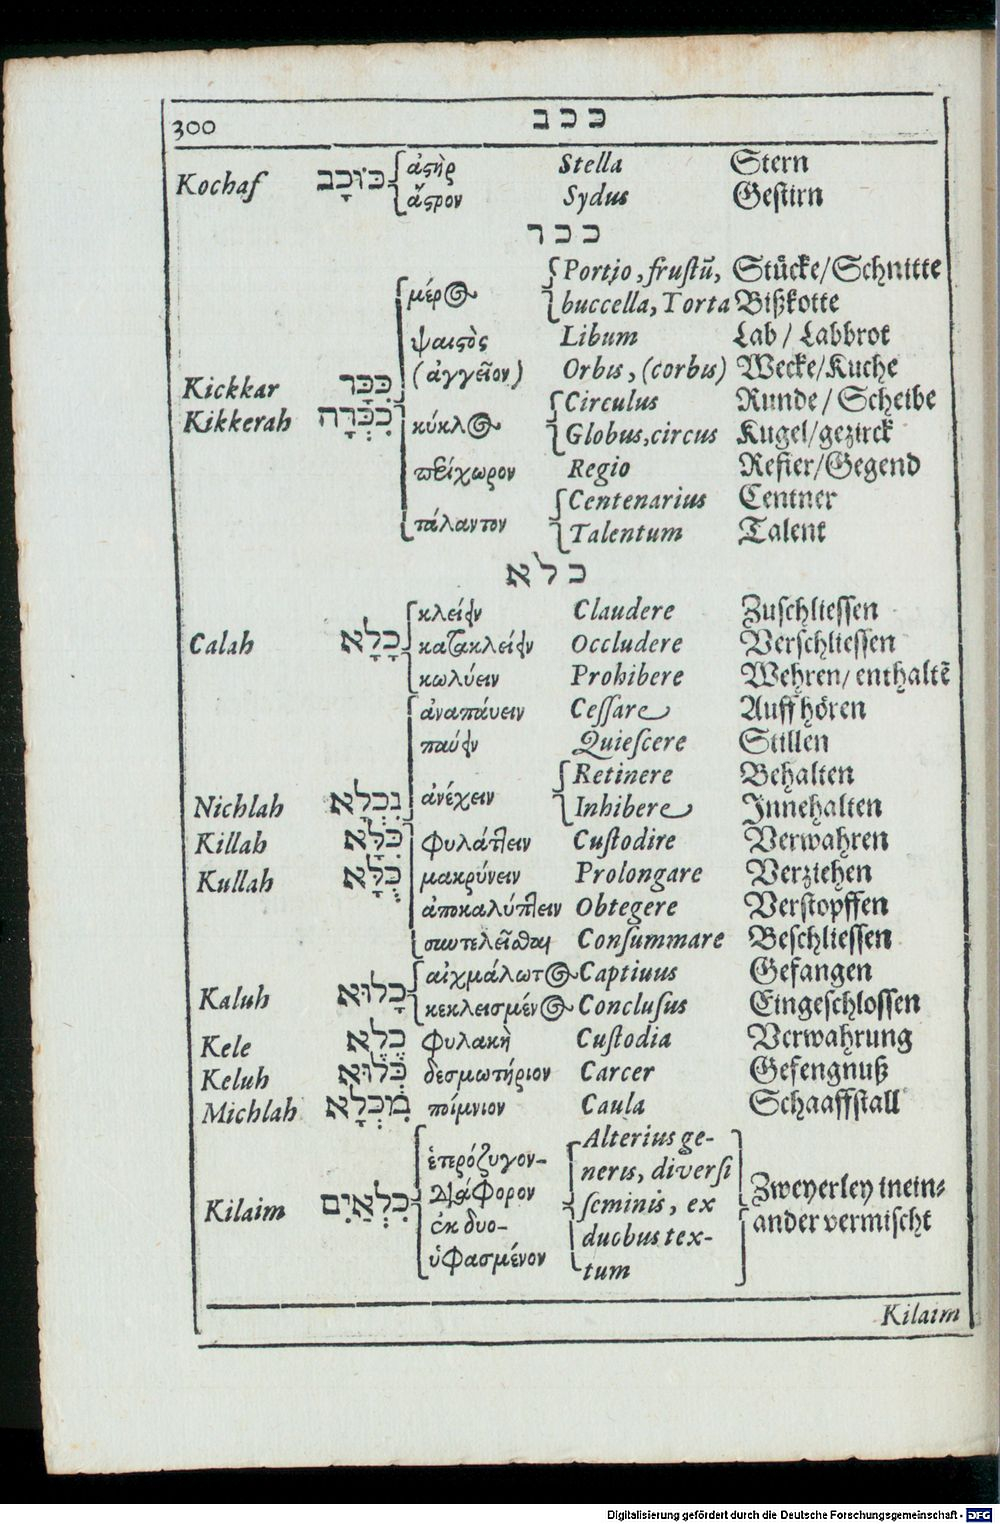 300 ככב
Kochaf כּוֹכָב ἀϛὴρ Stella Stern
ἄϛρον Sydus Gestirn
ככר
Portjo, frustũ, Stücke/Schnitte
μέρος buccella, Torta Bißkotte
ψαιϛὸς Libum Lab / Labbrot
(ἀγγεῖον) Orbis, (corbis) Wecke/Kuche
Kickkar כִּכָּר Circulus Runde / Scheibe
Kikkerah כִּכְּרָה κύκλος Globus, circus Kugel/gezirck
περίχωρον Regio Refier/Gegend
Centenarius Centner
τάλαντον Talentum Talent
כלא
κλείειν Claudere Zuschliessen
Calah כָּלָא κατακλείειν Occludere Verschliessen
κωλύειν Prohibere Wehren/ enthaltẽ
ἀναπάυειν Cessare Auffhören
παύειν Quiescere Stillen
Retinere Behalten
Nichlah נִכְלָא ἀνέχειν Inhibere Innehalten
Killah כִּלָּא φυλάττειν Custodire Verwahren
Kullah כֻּלָּא μακρύνειν Prolongare Verziehen
ἀποκαλύπτειν Obtegere Verstopffen
συντελεῖσθαι Consummare Beschliessen
αἰχμάλωτος Captiuus Gefangen
Kaluh כָלוּא κεκλεισμένος Conclusus Eingeschlossen
Kele כֶּלֶא φυλακὴ Custodia Verwahrung
Keluh כְּלוּא δεσμωτήριον Carcer Gefengnuß
Michlah מִכְלָא ποίμνιον Caula Schaaffstall
Alterius ge-
ἑτερόζυγον- neris, diversi
Kilaim כִּלְאַיִם διάφορον seminis, ex Zweyerley inein-
ἐκ δυο- duobus tex- ander vermischt
ὑφασμένον tum
Kilaim
Digitalisierung gefördert durch die Deutsche Forschungsgemeinschaft - DFG